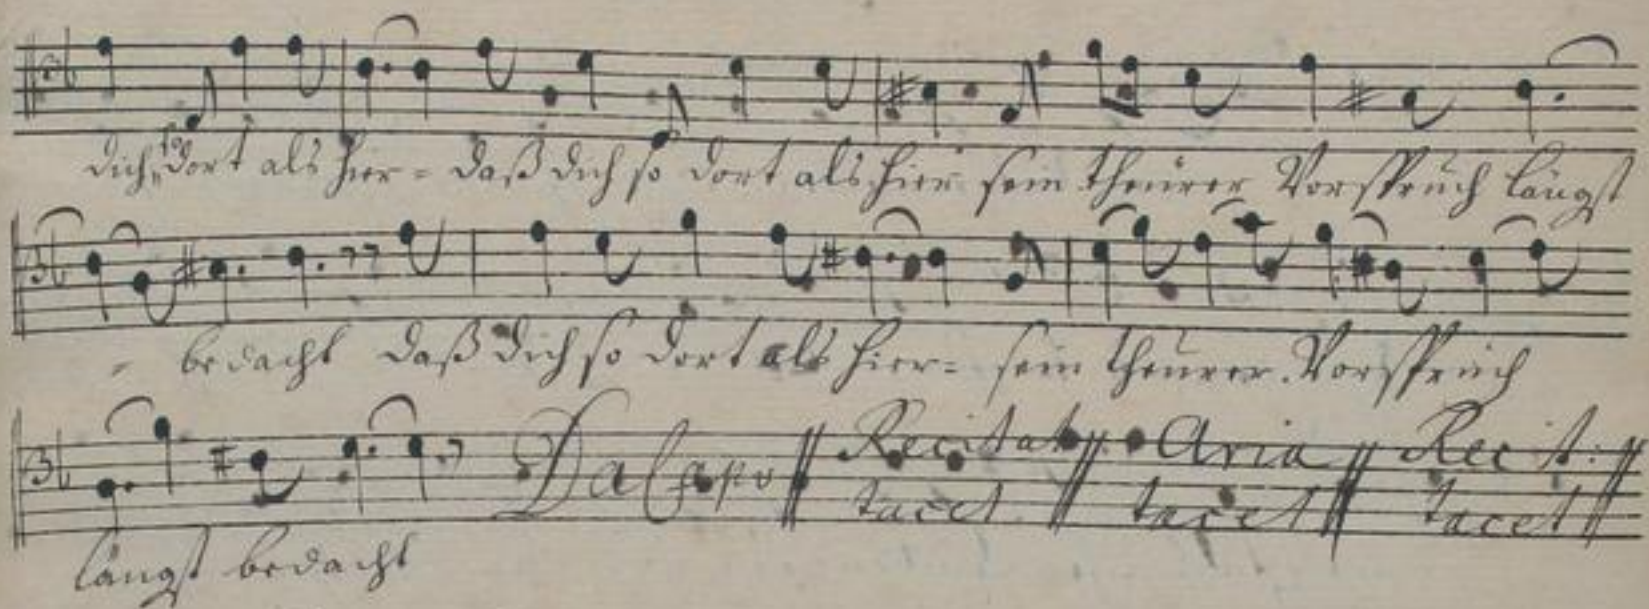 dich so dort als hier = daß dich so dort als hier sein theurer Vorspruch längst
= bedacht daß dich so dort als hier = sein theurer Vorspruch
Da Capo Recitat Aria Recit:
tacet tacet tacet
längst bedacht